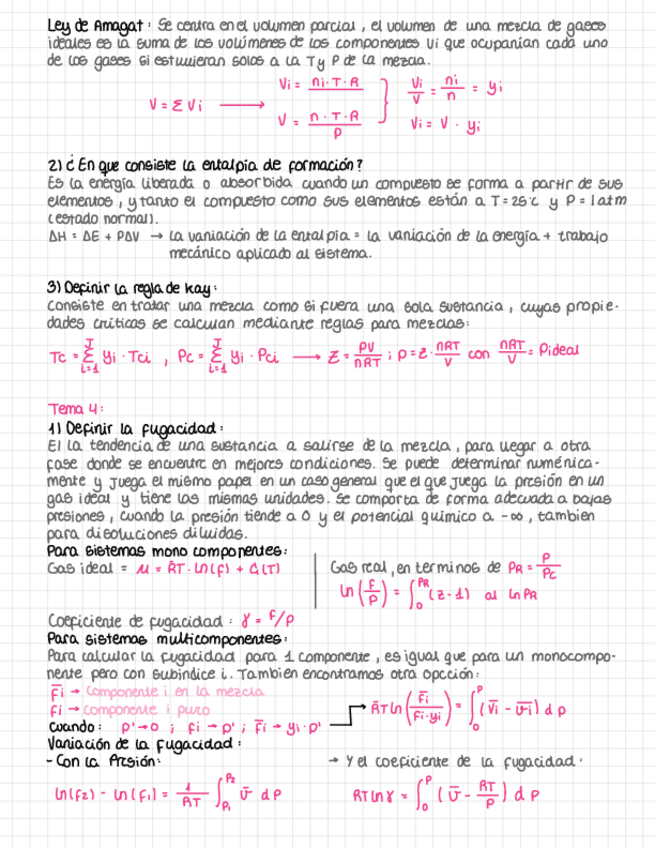 Ley de Amagat: Se centra en el volumen parcial, el volumen de una mezcla de gases
ideales es la suma de los volúmenes de los componentes Vi que ocuparían cada uno
de los gases si estuvieran solos a la T y P de la mezcla.
V = Σ Vi ⟶ Vi = ni·T·R / P } Vi/V = ni/n = yi
V = n·T·R / P Vi = V · yi
2) ¿En que consiste la entalpia de formación?
Es la energía liberada o absorbida cuando un compuesto se forma a partir de sus
elementos, y tanto el compuesto como sus elementos están a T=25°C y P=1atm
(estado normal).
ΔH = ΔE + PΔV → La variación de la entalpía = la variación de la energía + trabajo
mecánico aplicado al sistema.
3) Definir la regla de Kay:
Consiste en tratar una mezcla como si fuera una sola sustancia, cuyas propie-
dades críticas se calculan mediante reglas para mezclas:
Tc = Σ(i=1, J) yi · Tci , Pc = Σ(i=1, J) yi · Pci ⟶ Z = PV/nRT ; P = Z · nRT/V con nRT/V = Pideal
Tema 4:
1) Definir la fugacidad:
El la tendencia de una sustancia a salirse de la mezcla, para llegar a otra
fase donde se encuentre en mejores condiciones. Se puede determinar numérica-
mente y juega el mismo papel en un caso general que el que juega la presión en un
gas ideal y tiene las mismas unidades. Se comporta de forma adecuada a bajas
presiones, cuando la presión tiende a 0 y el potencial químico a -∞, tambien
para disoluciones diluidas.
Para sistemas mono componentes:
Gas ideal = μ = R̄T · ln(f) + C(T)
Gas real, en terminos de PR = P/Pc
ln(f/P) = ∫₀^PR (z-1) dl ln PR
Coeficiente de fugacidad: γ = f/p
Para sistemas multicomponentes:
Para calcular la fugacidad para 1 componente, es igual que para un monocompo-
nente pero con subíndice i. Tambien encontramos otra opcción:
f̄i → componente i en la mezcla
fi → componente i puro
Cuando: p'→0 ; fi → p' ; f̄i → yi · p'
R̄T ln(f̄i / fi·yi) = ∫₀^P (V̄i - v̄i) dP
Variación de la fugacidad:
- Con la Presión:
→ Y el coeficiente de la fugacidad:
ln(f2) - ln(f1) = 1/RT ∫P1^P2 v̄ dP
RT ln γ = ∫₀^P (v̄ - RT/P) dP